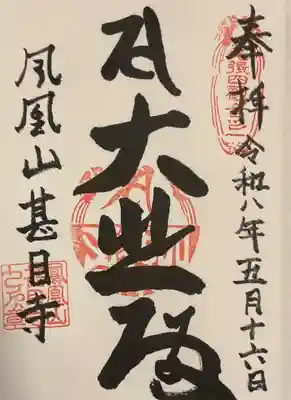 奉拝 令和八年五月十六日
大悲殿
鳳凰山甚目寺